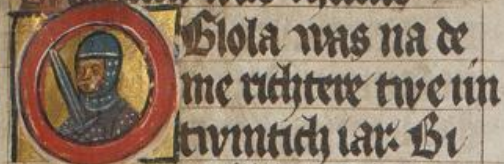 Thola was na de
me richtere twe un
twintich iar. Bi